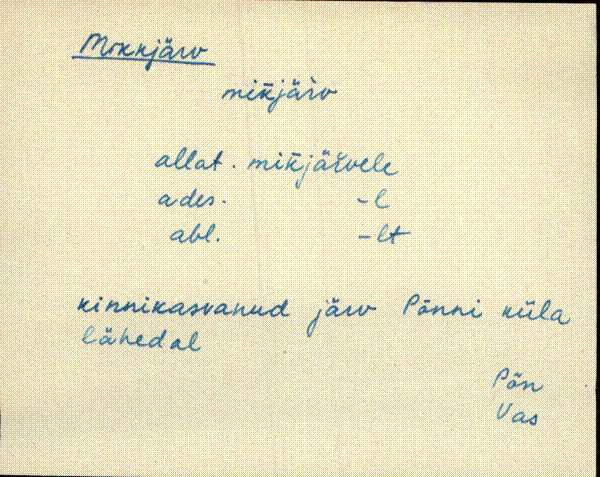 Mikkjärv
mik̄jäŕv
allat. mik̄jäŕvele
ades. -l
abl. -lt
kinnikasvanud järv Põnni küla
lähedal
Põn
Vas